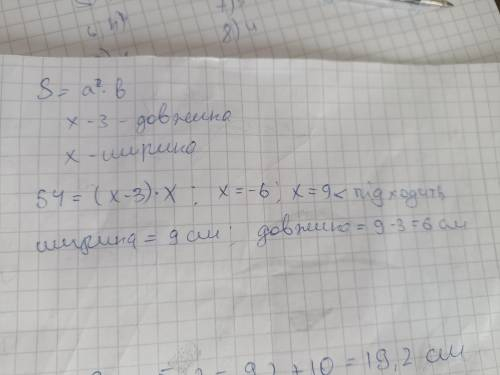 7)
6)
8) 4
S = a · b
x - 3 - довжина
x - ширина
54 = (x - 3) · x ; x = -6 ; x = 9 < підходить
ширина = 9 см ; довжина = 9 - 3 = 6 см
+ 10 = 19,2 см